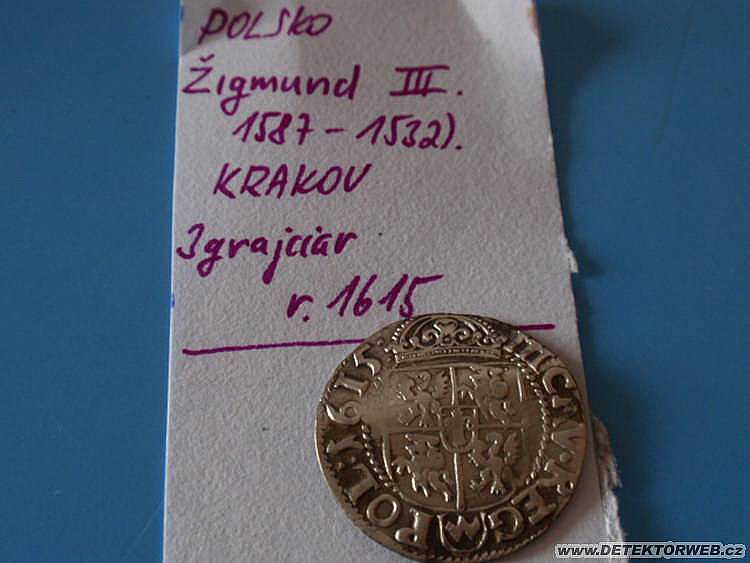 POLSKO
Žigmund III.
1587-1532).
KRAKOV
3grajciar
r. 1615
POL:1615:
www.DETEKTORWEB.cz